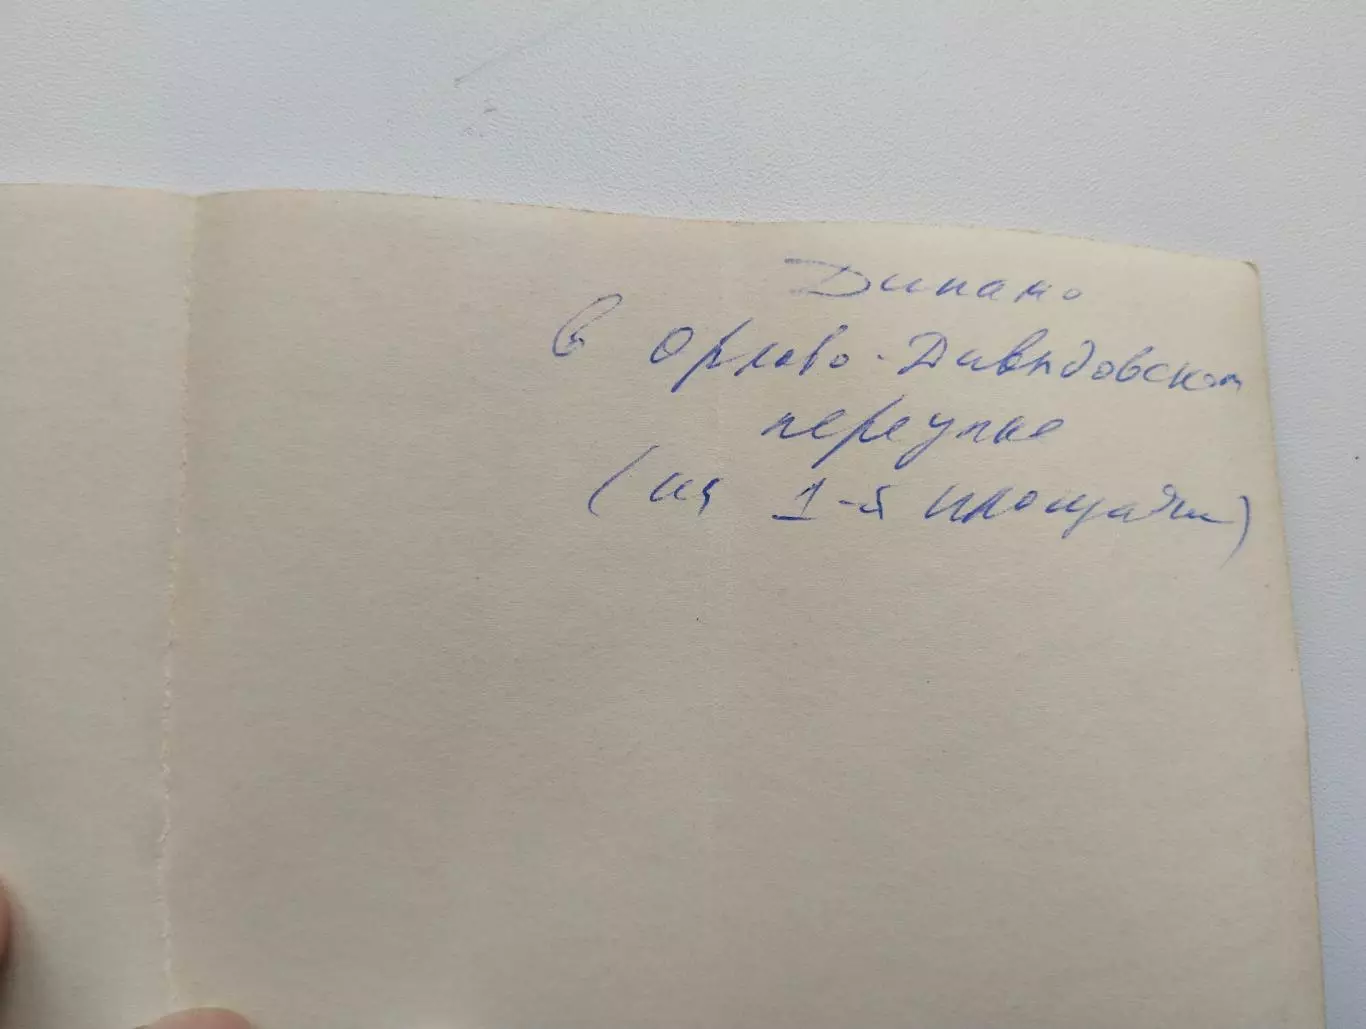 Динамо
в Орлово-Давыдовском
переулке
(на 1-й площадке)